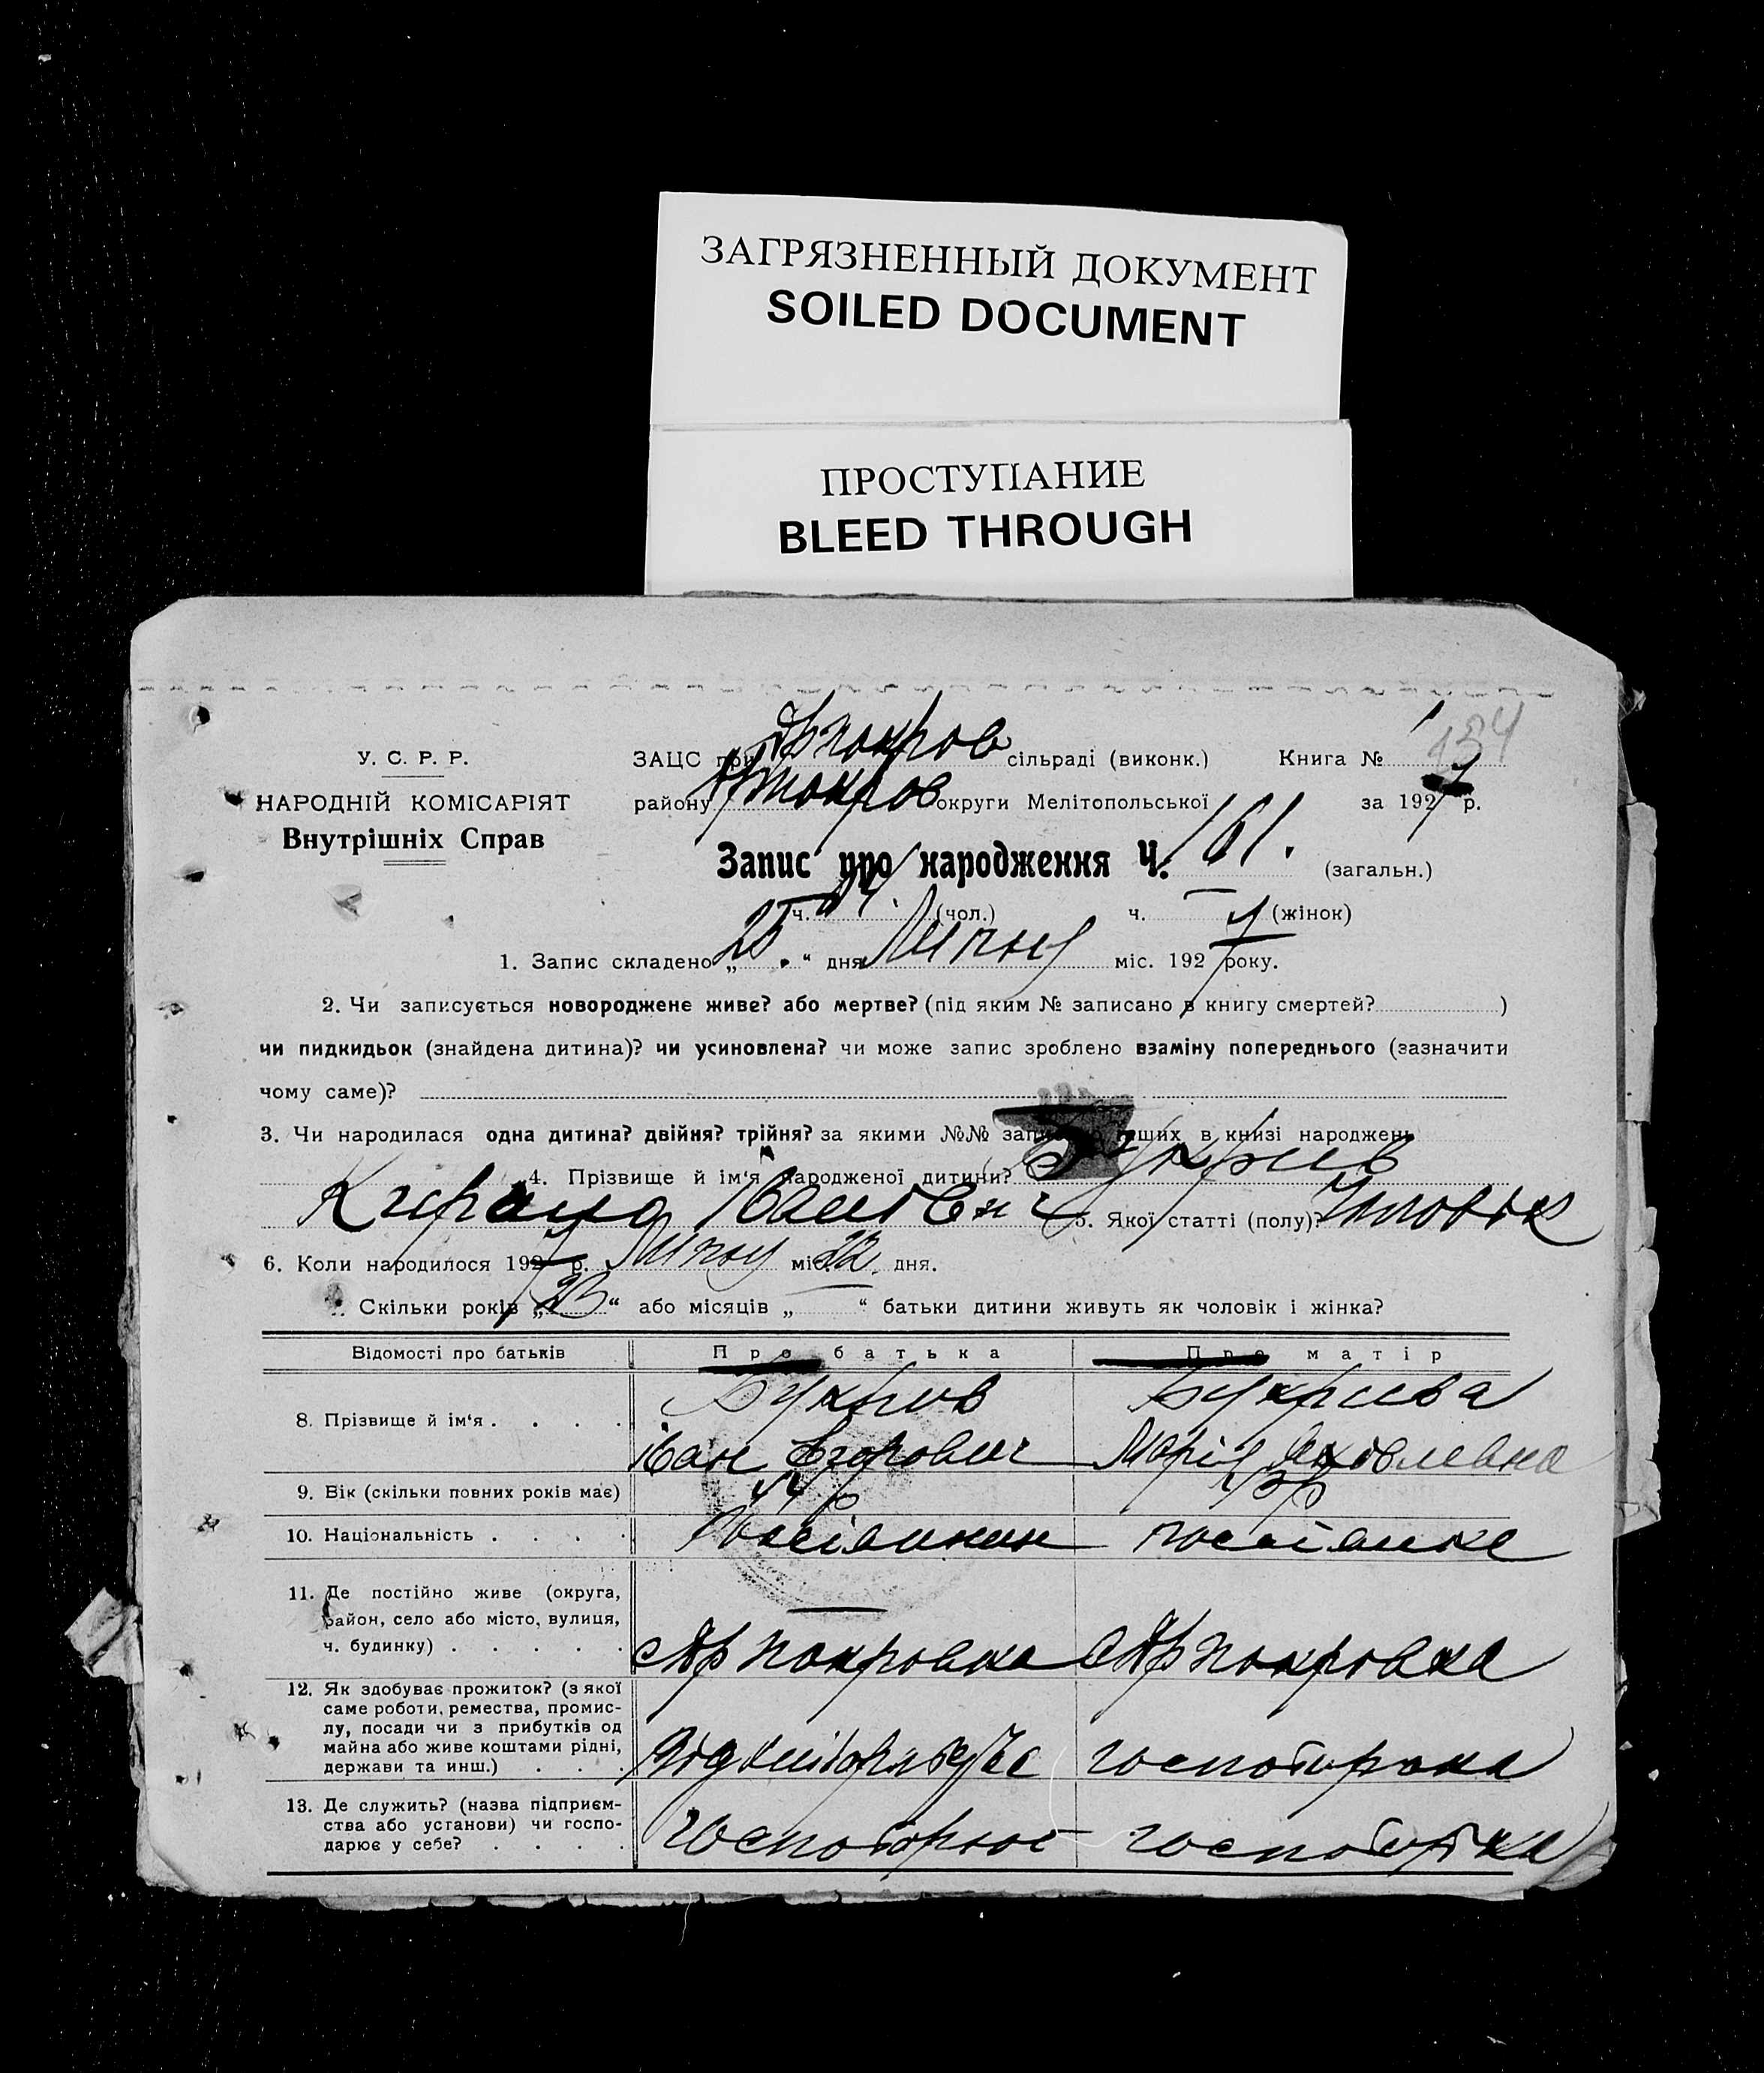 ЗАГРЯЗНЕННЫЙ ДОКУМЕНТ
SOILED DOCUMENT
ПРОСТУПАНИЕ
BLEED THROUGH
У. С. Р. Р.
НАРОДНІЙ КОМІСАРІЯТ
Внутрішніх Справ
ЗАЦС при сільраді (виконк.) Книга №
району округи Мелітопольської за 1927 р.
Запис про народження Ч. 161. (загальн.)
ч. (чол.) ч. — (жінок)
1. Запис складено „25“ дня Липня міс. 1927 року.
2. Чи записується новороджене живе? або мертве? (під яким № записано в книгу смертей? )
чи пидкидьок (знайдена дитина)? чи усиновлена? чи може запис зроблено взаміну попереднього (зазначити
чому саме)?
3. Чи народилася одна дитина? двійня? трійня? за якими №№ в книзі народжень
4. Прізвище й ім‘я народженої дитини?
Іванович 5. Якої статті (полу)? Чоловік
6. Коли народилося 1927 р. Липня міс. 22 дня.
Скільки років „23“ або місяців „—“ батьки дитини живуть як чоловік і жінка?
Відомості про батьків Про батька Про матір
8. Прізвище й ім‘я . . . . Букрив Букрива
Іван Егорович Марія Яковлевна
9. Вік (скільки повних років має) 44 р 43 р
10. Національність . . . .
11. Де постійно живе (округа,
район, село або місто, вулиця,
ч. будинку) . . . . . с Яр Покровка с Яр Покровка
12. Як здобуває прожиток? (з якої
саме роботи, ремества, промис-
лу, посади чи з прибутків од
майна або живе коштами рідні,
держави та инш.) . . .
13. Де служить? (назва підприєм-
ства або установи) чи госпо-
дарює у себе? . . . .